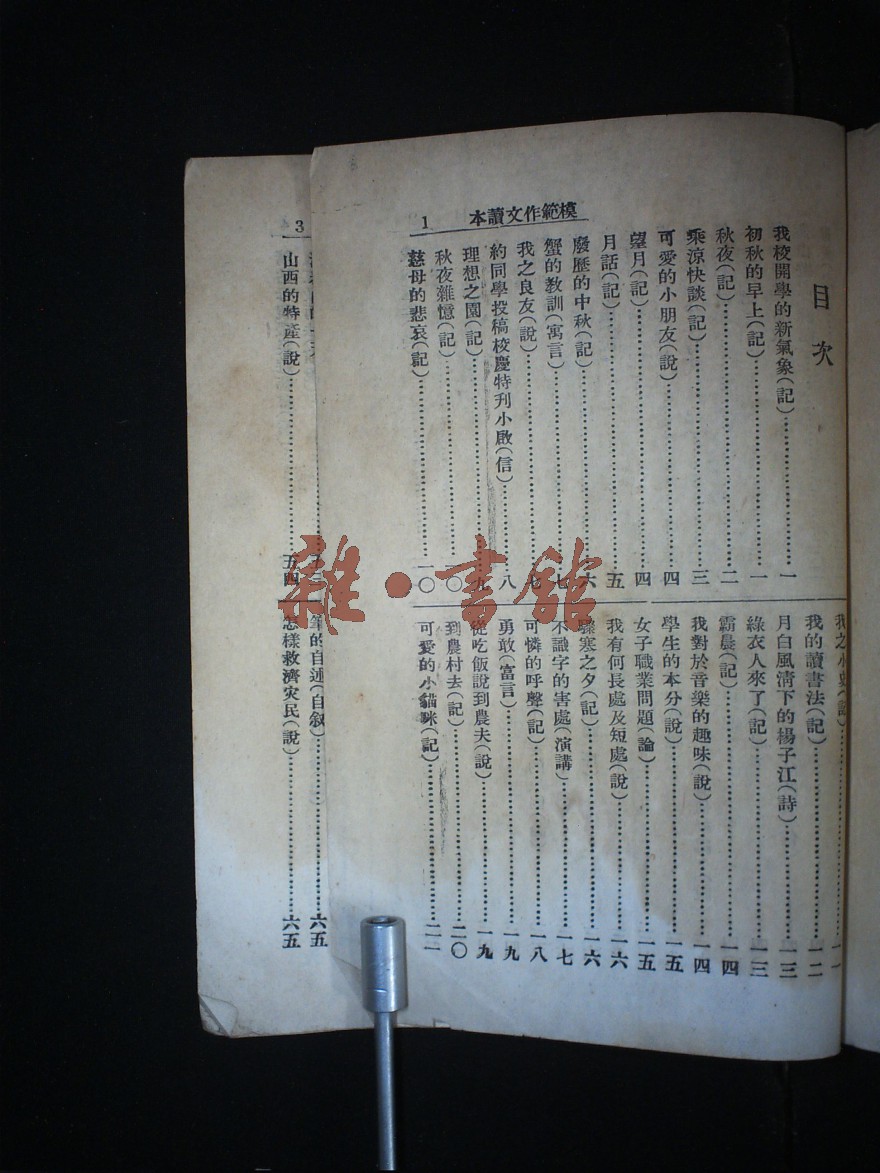 模範作文讀本
1
目次
我校開學的新氣象(記)……一
初秋的早上(記)……一
秋夜(記)……二
乘涼快談(記)……三
可愛的小朋友(說)……四
望月(記)……四
月話(記)……五
廢歷的中秋(記)……六
蟹的教訓(寓言)……七
我之良友(說)……七
約同學投稿校慶特刋小啟(信)……八
理想之園(記)……九
秋夜雜憶(記)……一〇
慈母的悲哀(記)……一〇
我之小史……一一
我的讀書法(記)……一二
月白風淸下的楊子江(詩)……一三
綠衣人來了(記)……一三
霜晨(記)……一四
我對於音樂的趣味(說)……一四
學生的本分(說)……一五
女子職業問題(論)……一五
我有何長處及短處(說)……一六
寒之夕(記)……一六
不識字的害處(演講)……一七
可憐的呼聲(記)……一八
勇敢(富言)……一九
從吃飯說到農夫(說)……一九
到農村去(記)……二〇
可愛的小貓咪(記)……二一
3
五三
山西的特產(說)……五四
筆的自述(自叙)……六五
怎樣救濟灾民(說)……六五
雜·書館